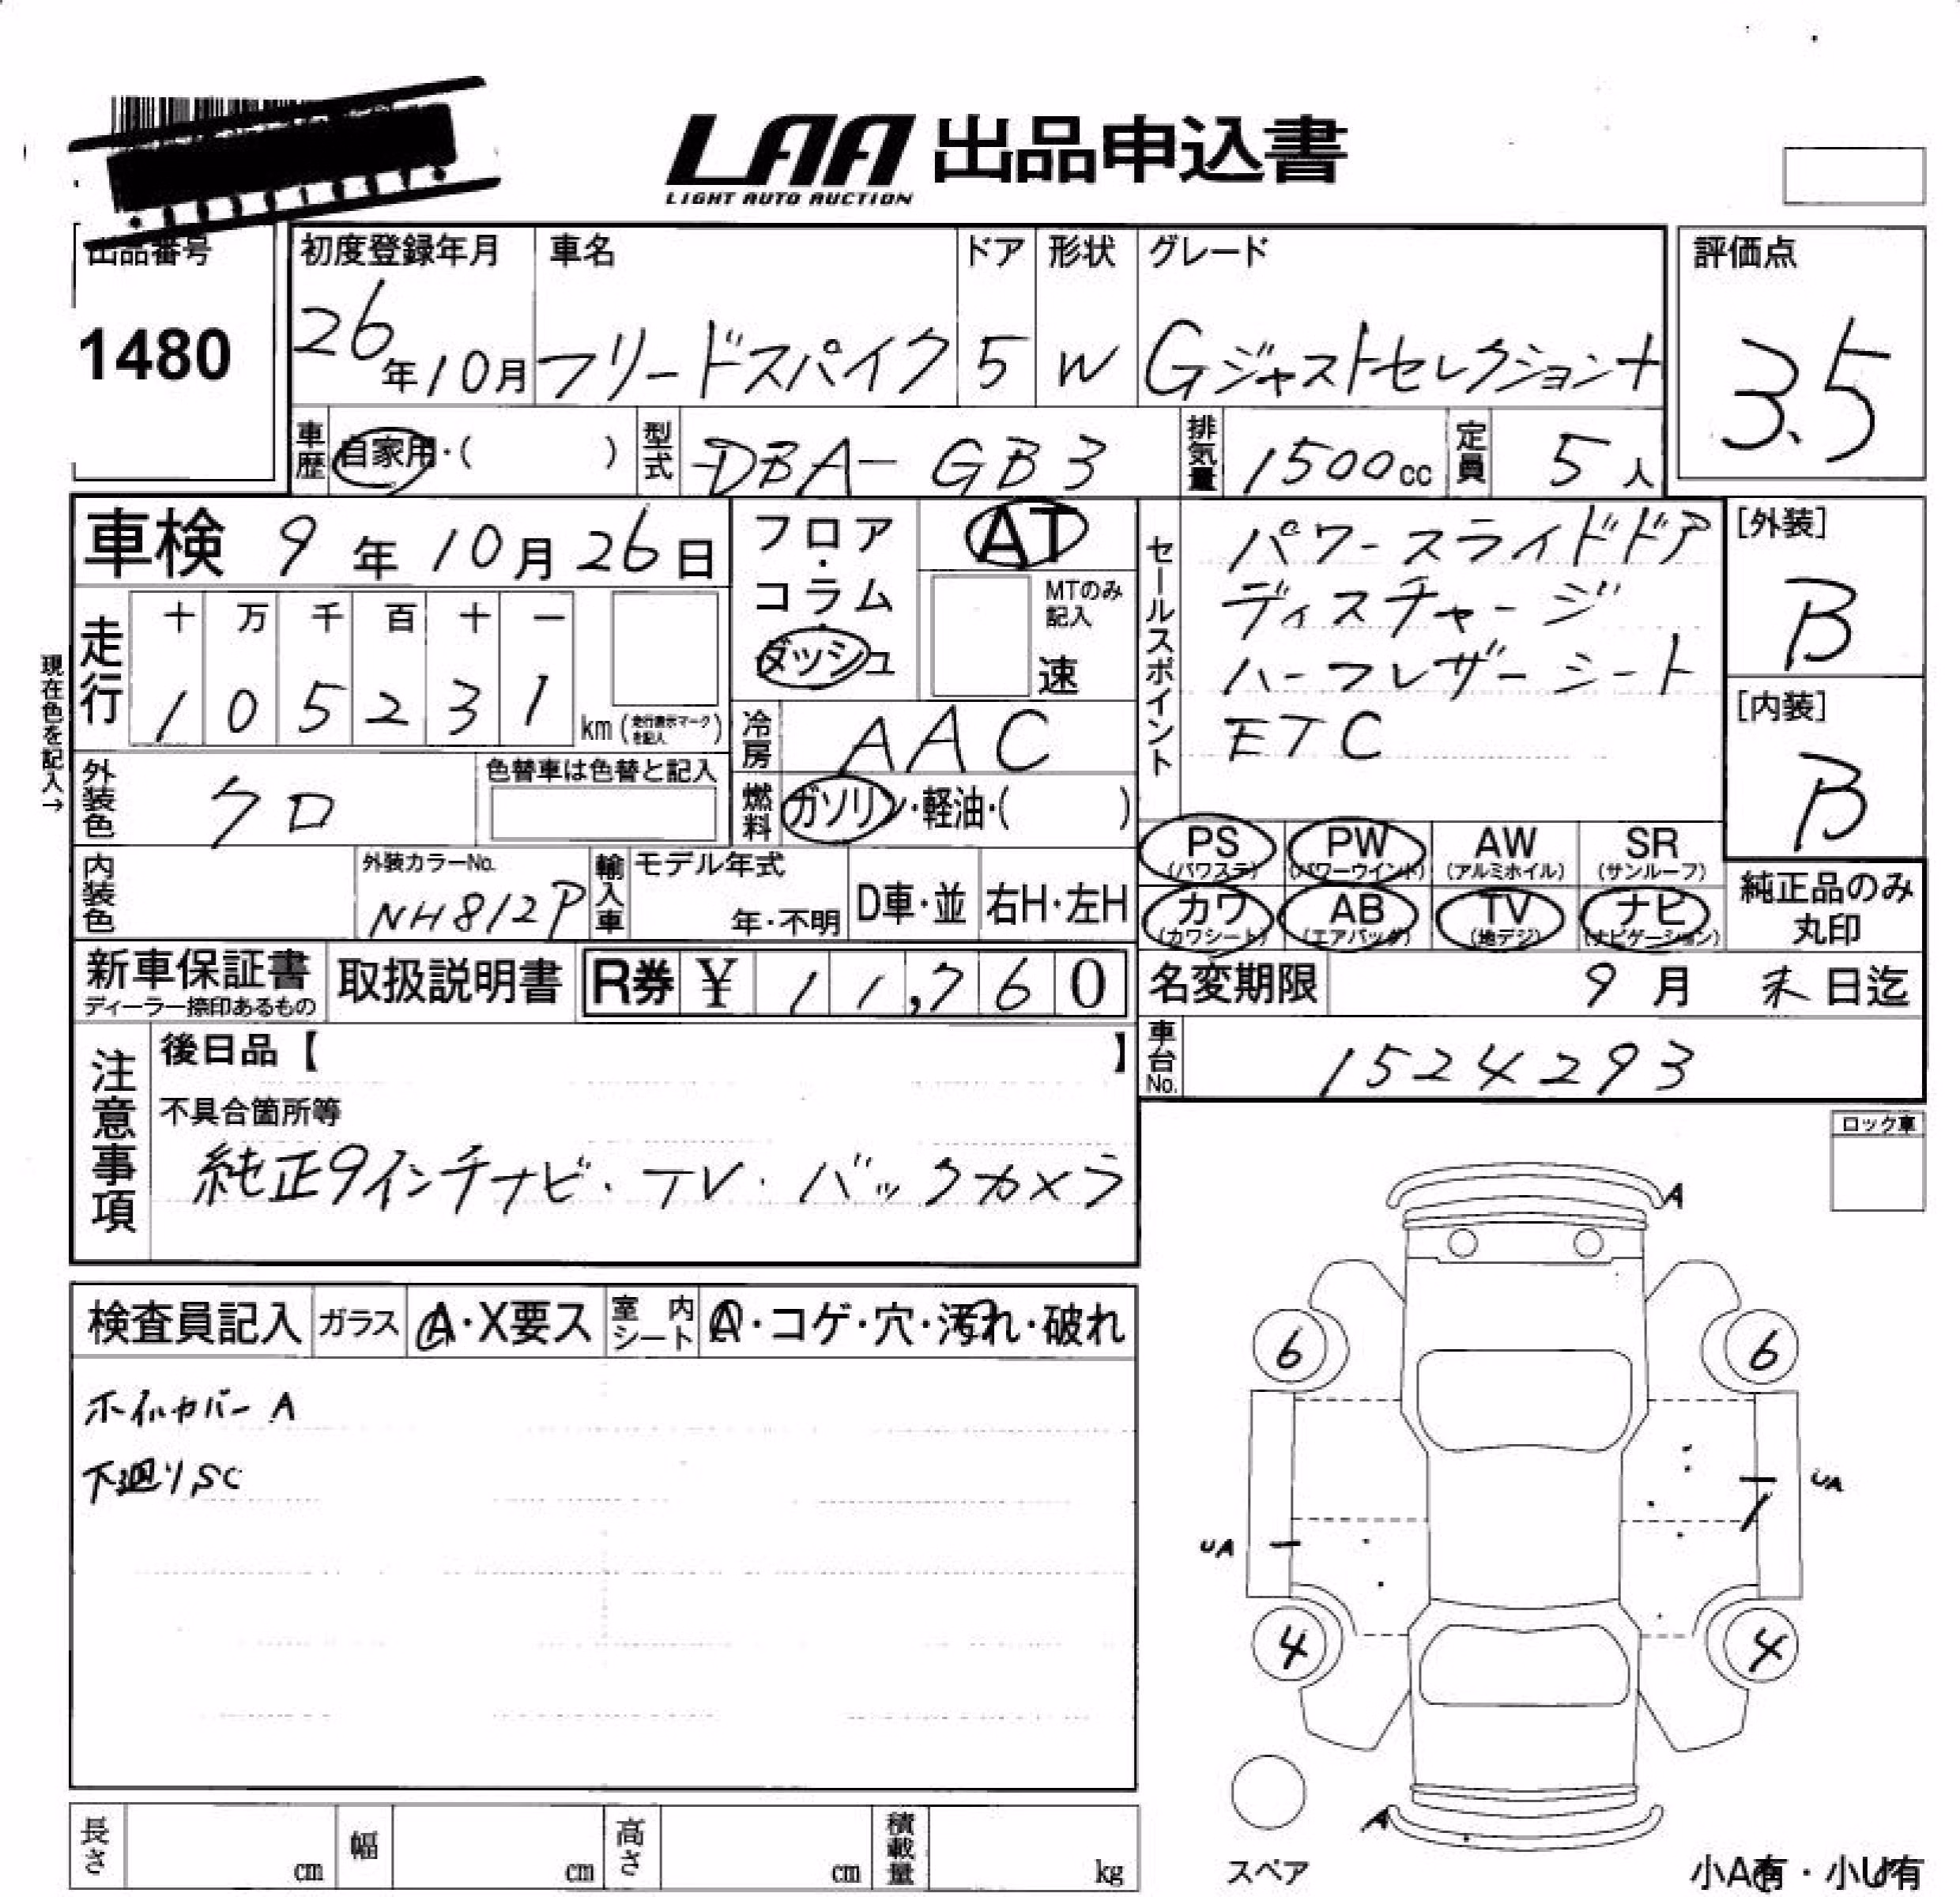 LAA 出品申込書
LIGHT AUTO AUCTION
出品番号
1480
初度登録年月
26年10月
車名
フリードスパイク
ドア
5
形状
W
グレード
Gジャストセレクション+
評価点
3.5
車歴
自家用・( )
型式
DBA-GB3
排気量
1500cc
定員
5人
車検 9年10月26日
フロア・コラム・ダッシュ
AT
MTのみ記入
速
セールスポイント
パワースライドドア
ディスチャージ
ハーフレザーシート
ETC
[外装]
B
[内装]
B
現在色を記入→
走行
十 万 千 百 十 一
1 0 5 2 3 1 km (走行表示マークを記入)
冷房
AAC
外装色
クロ
色替車は色替と記入
燃料
ガソリン・軽油・( )
PS (パワステ)
PW (パワーウインド)
AW (アルミホイル)
SR (サンルーフ)
カワ (カワシート)
AB (エアバッグ)
TV (地デジ)
ナビ (ナビゲーション)
純正品のみ丸印
内装色
外装カラーNo.
NH812P
輸入車
モデル年式
年・不明
D車・並
右H・左H
新車保証書
ディーラー捺印あるもの
取扱説明書
R券 ¥ 11,760
名変期限 9月末日迄
車台No.
1524293
注意事項
後日品【 】
不具合箇所等
純正9インチナビ・TV・バックカメラ
ロック車
検査員記入
ガラス
A・X要ス
室内シート
A・コゲ・穴・汚れ・破れ
ホイルカバーA
下廻りSC
A
6
6
UA
UA
4
4
A
スペア
小A有・小U有
長さ cm
幅 cm
高さ cm
積載量 kg